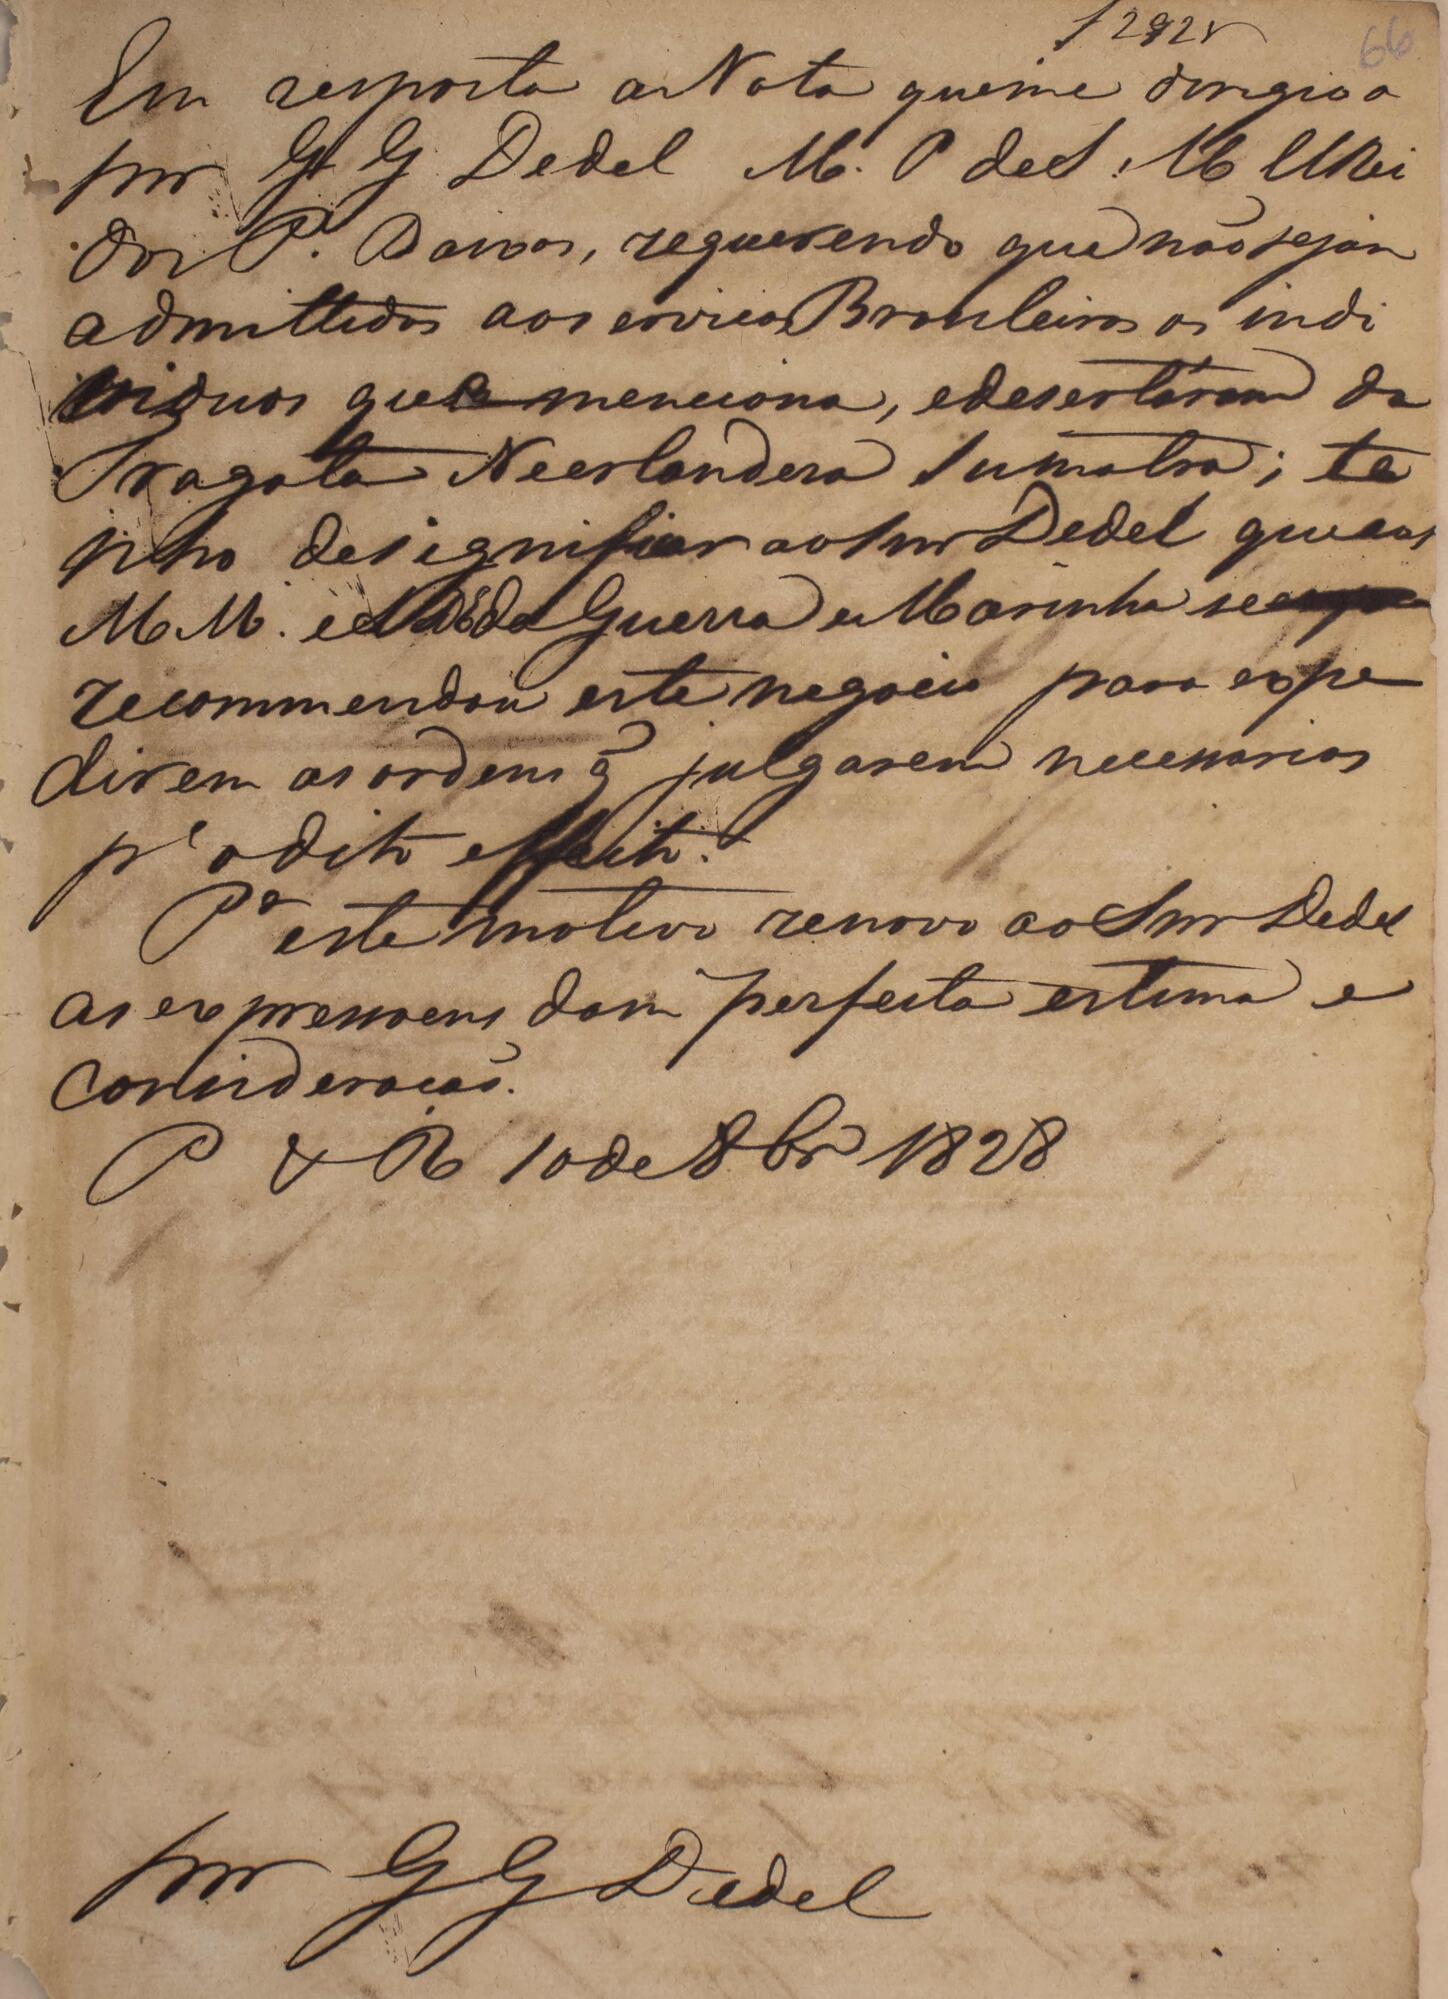 66
Em resposta a Nota que me dirigio o
Snr G G Dedel M. P de S. M El Rei
dos P. Baixos, requerendo que não sejão
admittidos ao serviço Brasileiro os indi
viduos que menciona, e desertárão da
Fragata Neerlandesa Sumatra; te
nho de significar ao Snr Dedel que aos
M M. e da Guerra e Marinha se
recommendou este negocio para expe
direm as ordens q̃ julgarem necessarias
pª o dito effeito.
Pr este motivo renovo ao Snr Dedel
as expressoens da m perfeita estima e
consideração.
P & R 10 de 8bro 1828
Snr G G Dedel